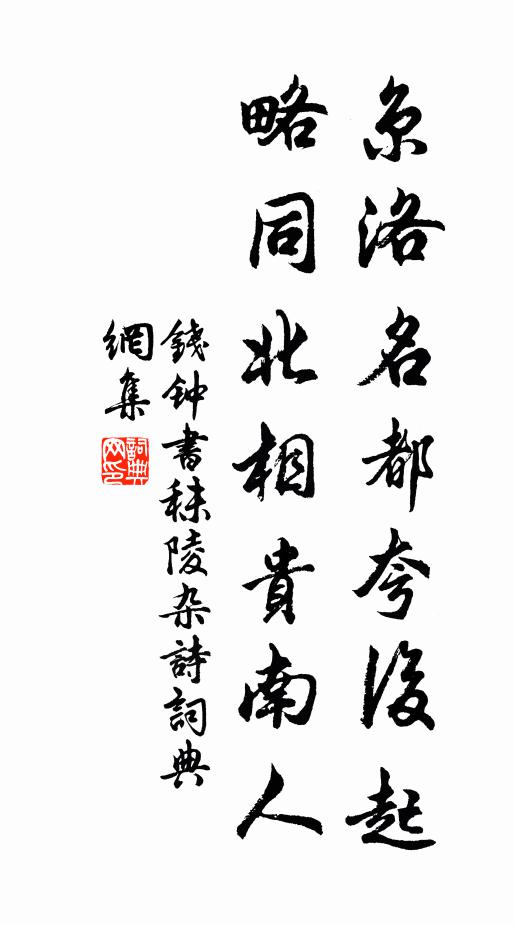 京洛名都夸後起
略同北相貴南人
錢钟書秣陵杂詩詞典
網集
詞典
网印